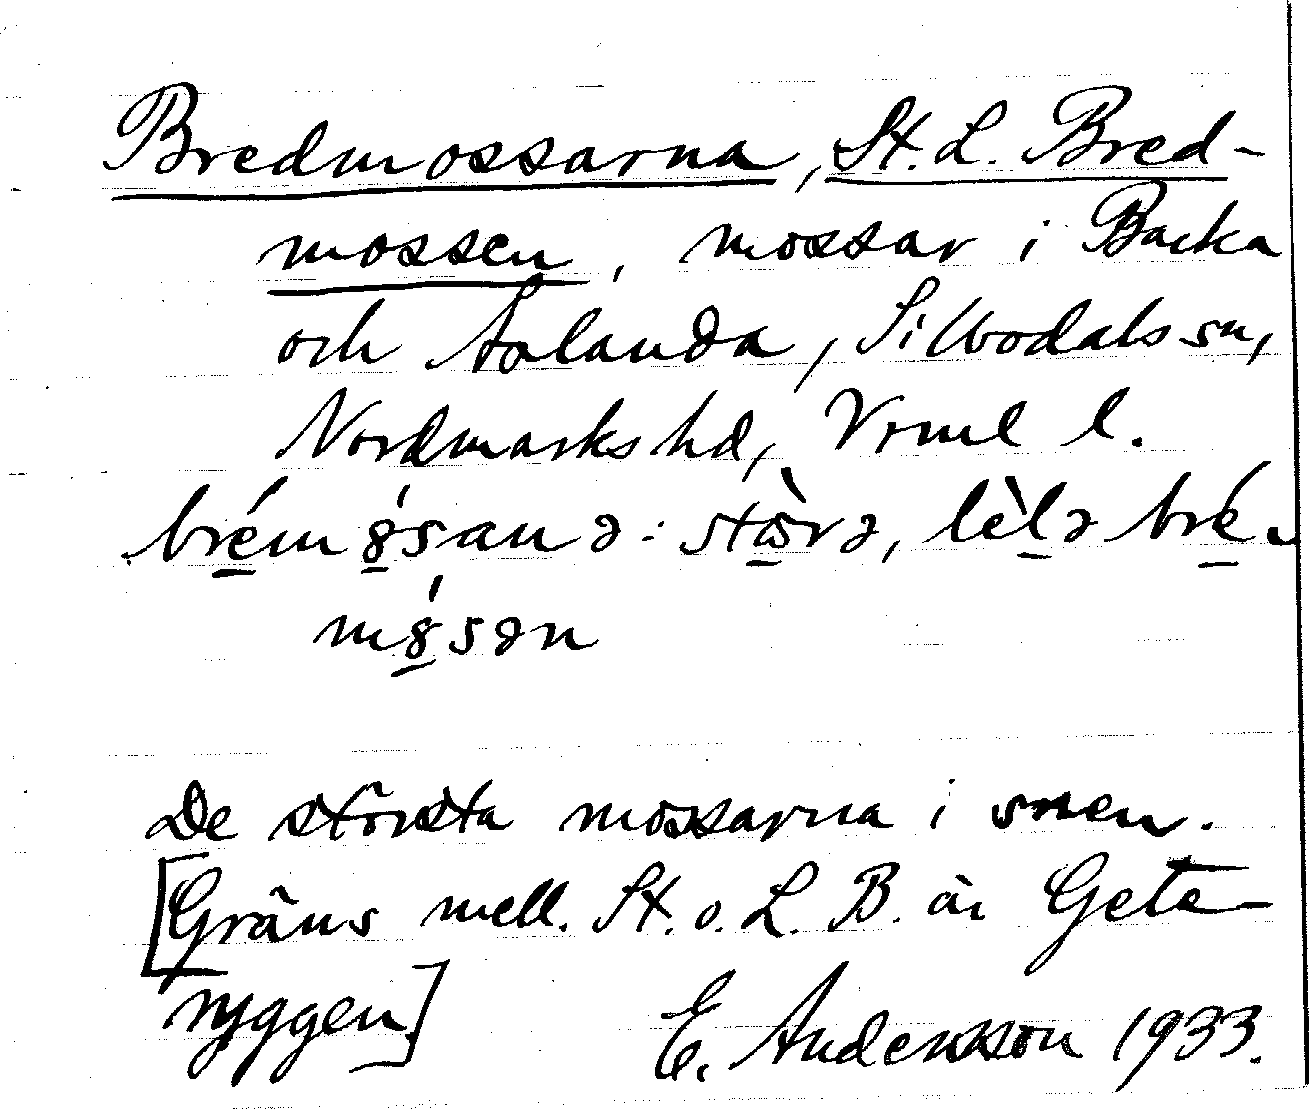 Bredmossarna, St. L. Bred-
mossen, mossar i Backa
och Åslanda, Silbodals sn,
Nordmarks hd, Vrml l.
brém8́sanə: stɷ̀rə, lèlə bré-
m8́sən
De största mossarna i snen.
[Gräns mell. St. o. L. B. är Gete-
ryggen] E. Andersson 1933.